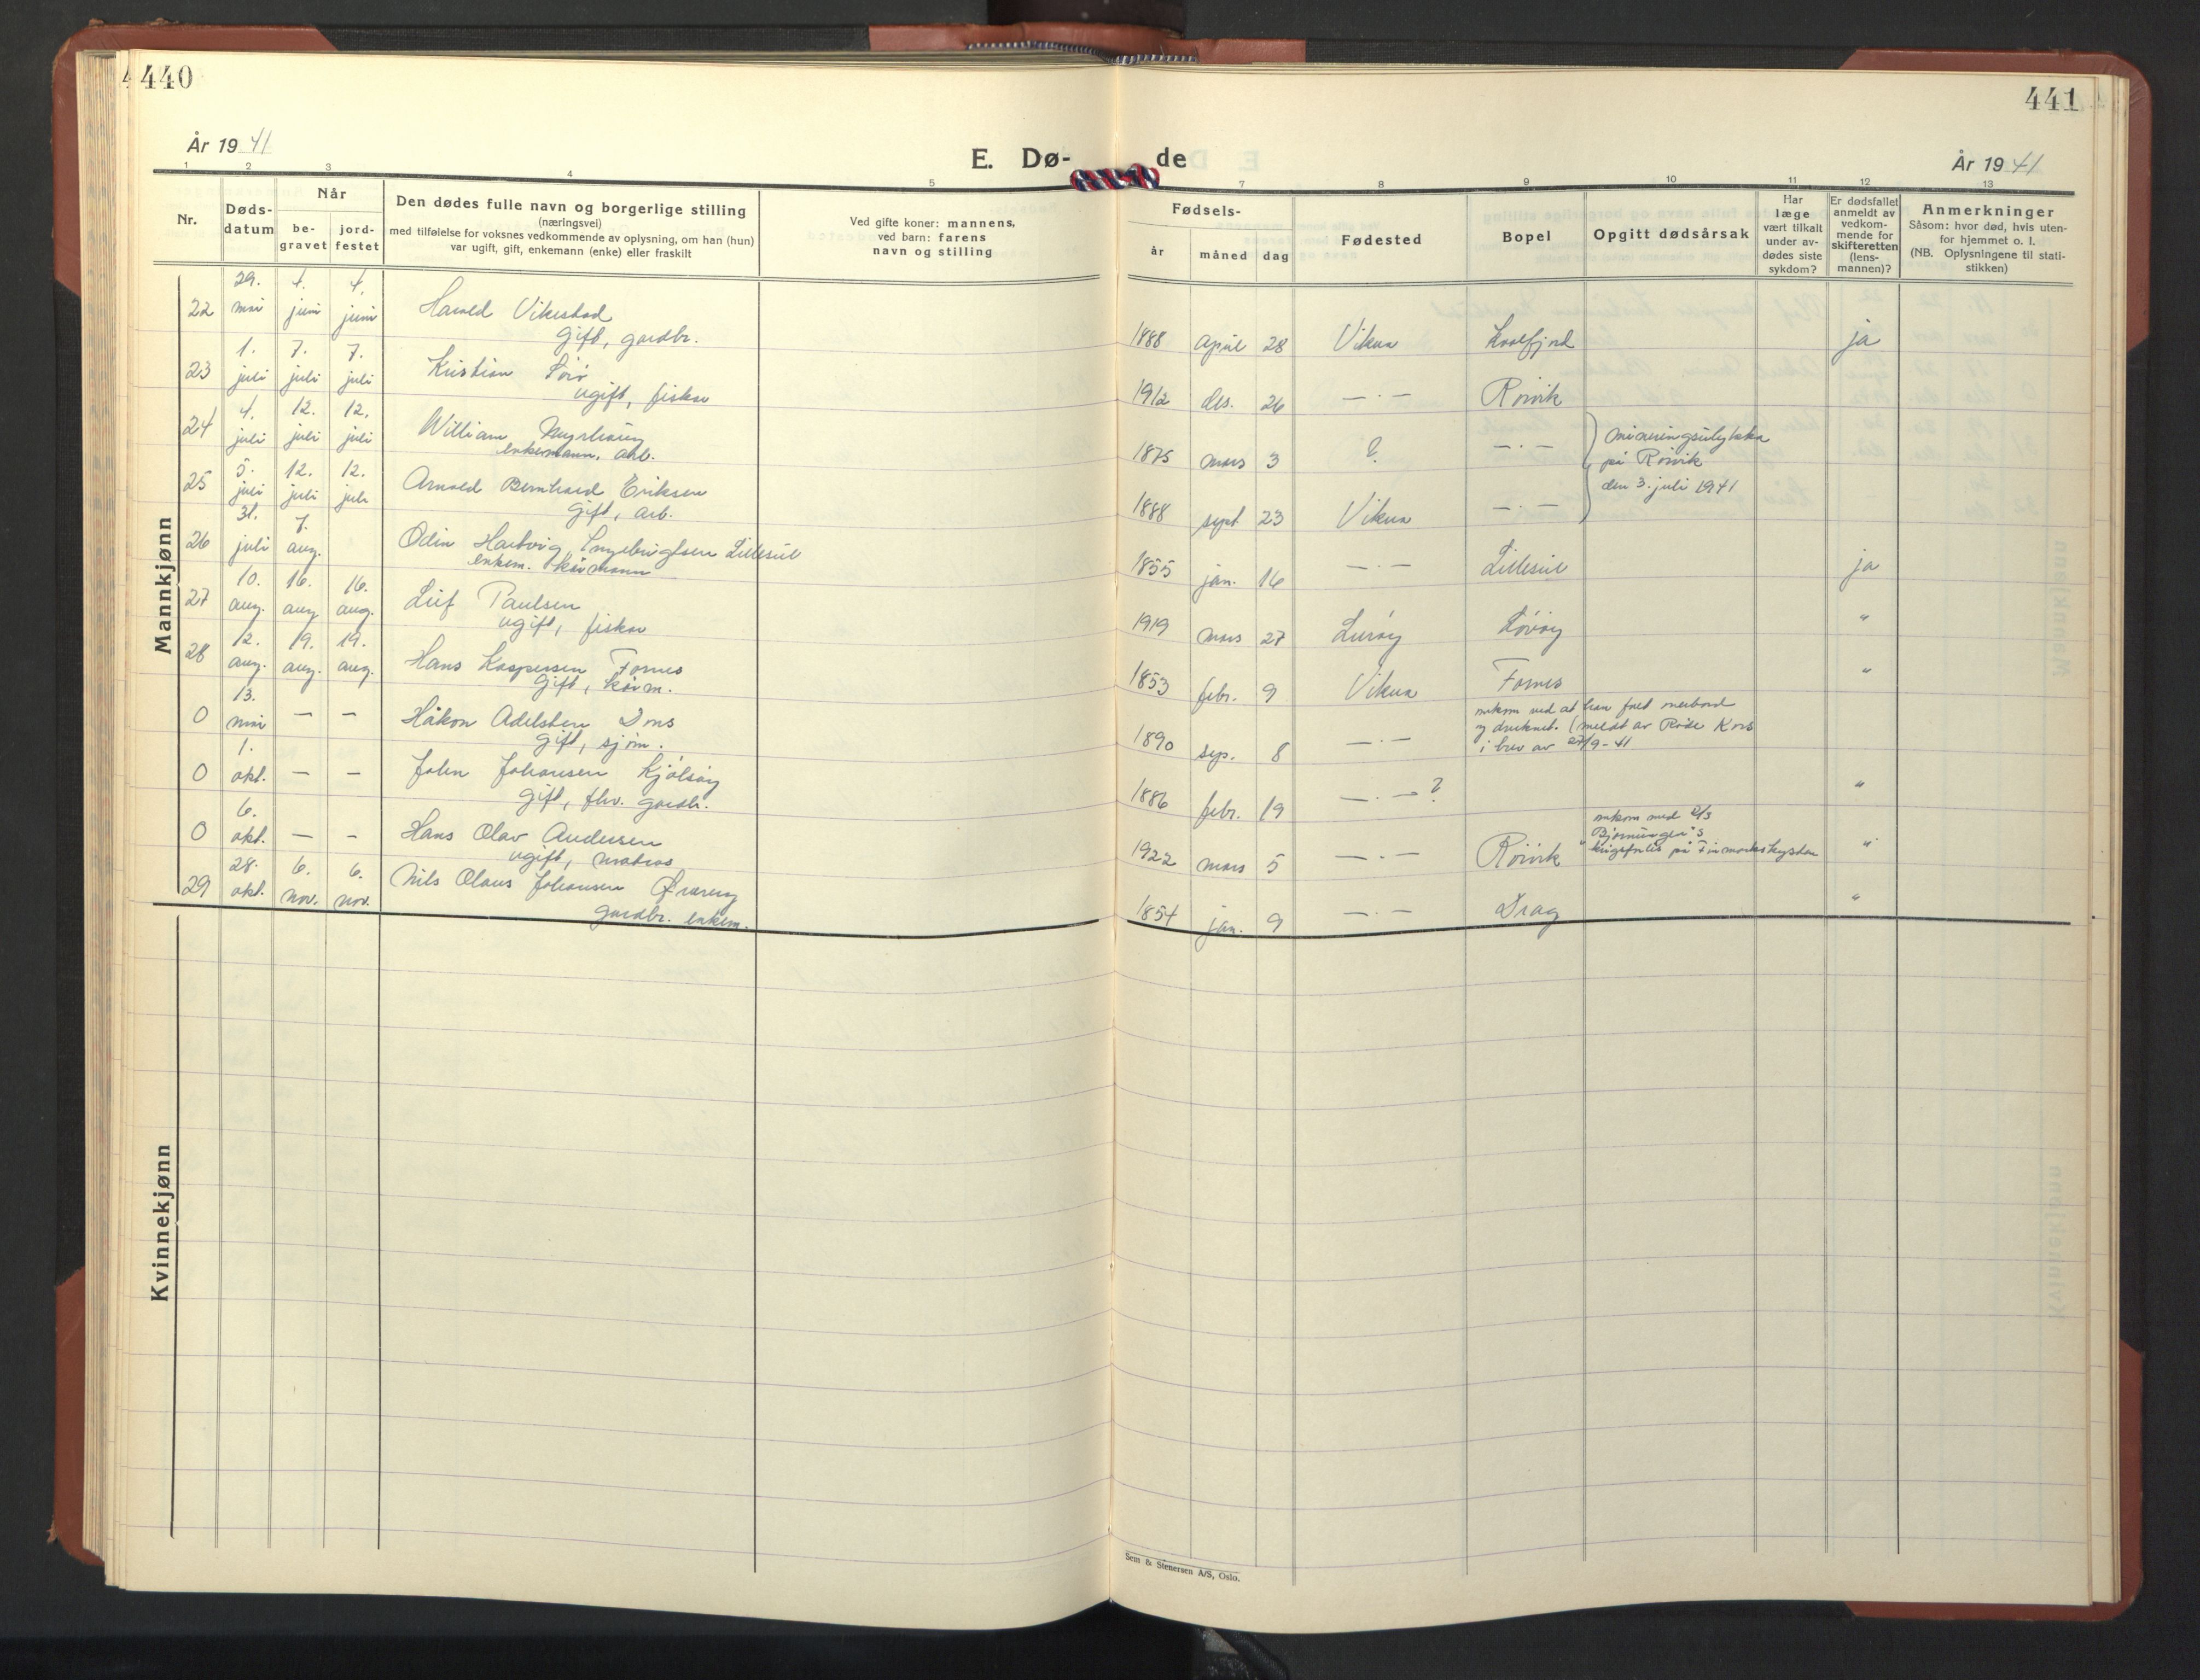 440
441
År 1941
E. Dø-
de
År 1941
1 2 3 4 5
7 8 9 10 11 12 13
Nr.
Døds-
datum
Når
be-
gravet
jord-
festet
Den dødes fulle navn og borgerlige stilling
(næringsvei)
med tilføielse for voksnes vedkommende av oplysning, om han (hun)
var ugift, gift, enkemann (enke) eller fraskilt
Ved gifte koner: mannens,
ved barn: farens
navn og stilling
Fødsels-
år
måned
dag
Fødested
Bopel
Opgitt dødsårsak
Har
læge
vært tilkalt
under av-
dødes siste
sykdom?
Er dødsfallet
anmeldt av
vedkom-
mende for
skifteretten
(lens-
mannen)?
Anmerkninger
Såsom: hvor død, hvis uten-
for hjemmet o. l.
(NB. Oplysningene til stati-
stikken)
Mannkjønn
22 29. mai 4. juni 4. juni Harald Vikestad
gift, gardbr.
1888 april 28 Vikna ja
23 1. juli 7. juli 7. juli Kristian
ugift, fisker
1912 des. 26 — · — Rörvik
24 4. juli 12. juli 12. juli William
enkemann, arb.
1875 mars 3 ? — · —
mineringsulykke
på Rörvik
den 3. juli 1941
25 5. juli 12. juli 12. juli Arnold Bernhard Eriksen
gift, arb.
1888 sept 23 Vikna — · —
26 31. juli 7. aug. Odin Hartvig Ingebrigtsen
enkem. kårmann
1855 jan. 16 — · — ja
27 10. aug. 16. aug. 16. aug. Leif Paulsen
ugift, fisker
1919 mars 27 Lurøy "
28 12. aug. 19. aug. 19. aug. Hans Kaspersen Fornes
gift, kårm.
1853 febr. 9 Vikna Fornes "
0 13. mai — — Håkon Adelsten
gift, sjøm.
1890 sep. 8 — · —
omkom ved at han falt overbord
og druknet. (meldt av Røde Kors
i brev av 27/9-41
0 1. okt. — — John Johansen
gift, fhv. gardbr.
1886 febr. 19 — · — ? "
0 6. okt. — — Hans Olav Andersen
ugift, matros
1922 mars 5 — · — Rörvik "
omkom med
krigsforlis på Finmarkskysten
29 28. okt. 6. nov. 6. nov. Nils Olaus Johansen
gardbr. enkem.
1854 jan. 9 — · — Drag "
Kvinnekjønn
Sem & Stenersen A/S, Oslo.